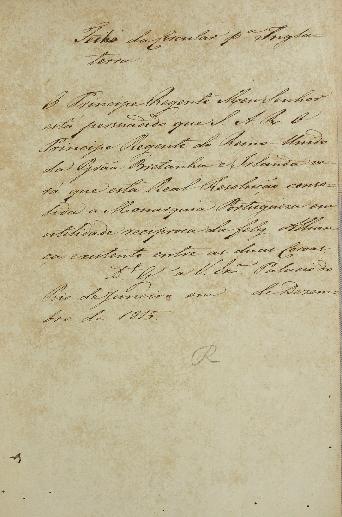 Fecho da Circular pª Ingla-
terra
O Principe Regente Meu Senhor
está persuadido que S A R O
Principe Regente do Reino Unido
da Grãa Bretanha e Irlanda ve-
rá que esta Real Resolução conso-
lida a Monarquia Portugueza em
utilidade reciproca da feliz Allian-
ça existente entre as duas Coroas
Ds Ge a V. Exª Palacio do
Rio de Janeiro em de Dezem-
bro de 1815.
R